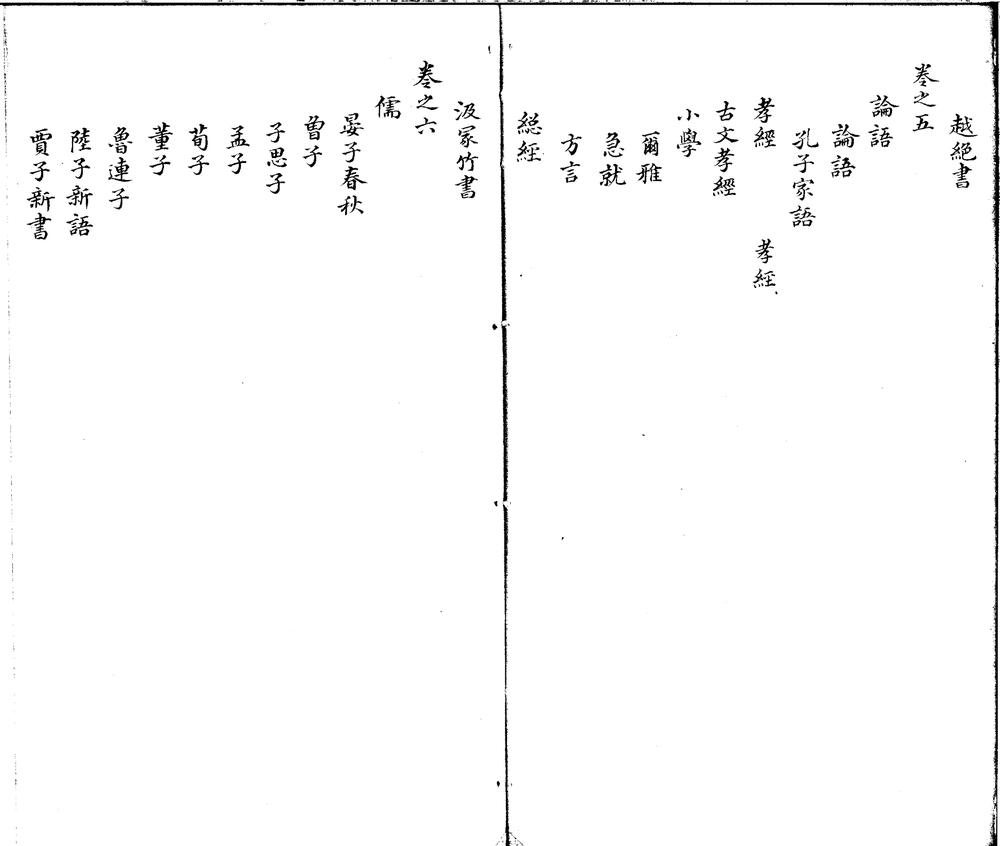 越絕書
卷之五
論語
論語
孔子家語
孝經　孝經
古文孝經
小學
爾雅
急就
方言
総經
汲冡竹書
卷之六
儒
晏子春秋
曾子
子思子
孟子
荀子
董子
魯連子
陸子新語
賈子新書